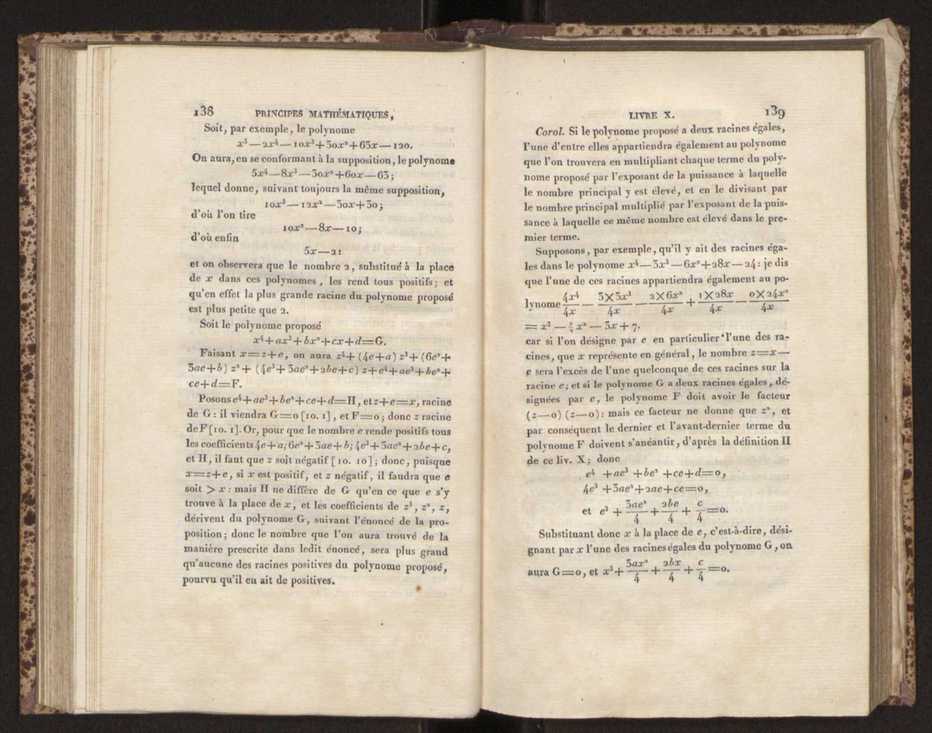 138 PRINCIPES MATHÉMATIQUES,
Soit, par exemple, le polynome
x⁵—2x⁴—10x³+30x²+63x—120.
On aura, en se conformant à la supposition, le polynome
5x⁴—8x³—30x²+60x—63;
lequel donne, suivant toujours la même supposition,
10x³—12x²—30x+30;
d'où l'on tire
10x²—8x—10;
d'où enfin
5x—2:
et on observera que le nombre 2, substitué à la place
de x dans ces polynomes, les rend tous positifs; et
qu'en effet la plus grande racine du polynome proposé
est plus petite que 2.
Soit le polynome proposé
x⁴+ax³+bx²+cx+d=G.
Faisant x=z+e, on aura z⁴+(4e+a)z³+(6e²+
3ae+b)z²+(4e³+3ae²+2be+c)z+e⁴+ae³+be²+
ce+d=F.
Posons e⁴+ae³+be²+ce+d=H, et z+e=x, racine
de G : il viendra G=0 [10. 1], et F=0; donc z racine
de F [10. 1]. Or, pour que le nombre e rende positifs tous
les coefficients 4e+a, 6e²+3ae+b; 4e³+3ae²+2be+c,
et H, il faut que z soit négatif [10. 10]; donc, puisque
x=z+e, si x est positif, et z négatif, il faudra que e
soit > x : mais H ne diffère de G qu'en ce que e s'y
trouve à la place de x, et les coefficients de z³, z², z,
dérivent du polynome G, suivant l'énoncé de la pro-
position; donc le nombre que l'on aura trouvé de la
manière prescrite dans ledit énoncé, sera plus grand
qu'aucune des racines positives du polynome proposé,
pourvu qu'il en ait de positives.
LIVRE X. 139
Corol. Si le polynome proposé a deux racines égales,
l'une d'entre elles appartiendra également au polynome
que l'on trouvera en multipliant chaque terme du poly-
nome proposé par l'exposant de la puissance à laquelle
le nombre principal y est élevé, et en le divisant par
le nombre principal multiplié par l'exposant de la puis-
sance à laquelle ce même nombre est élevé dans le pre-
mier terme.
Supposons, par exemple, qu'il y ait des racines éga-
les dans le polynome x⁴—3x³—6x²+28x—24 : je dis
que l'une de ces racines appartiendra également au po-
lynome 4x⁴/4x — 3×3x³/4x — 2×6x²/4x + 1×28x/4x — 0×24x⁰/4x
= x³ — 9/4 x² — 3x + 7.
car si l'on désigne par e en particulier l'une des ra-
cines, que x représente en général, le nombre z=x—
e sera l'excès de l'une quelconque de ces racines sur la
racine e; et si le polynome G a deux racines égales, dé-
signées par e, le polynome F doit avoir le facteur
(z—0) (z—0) : mais ce facteur ne donne que z², et
par conséquent le dernier et l'avant-dernier terme du
polynome F doivent s'anéantir, d'après la définition II
de ce liv. X; donc
e⁴ +ae³ +be² +ce+d=0,
4e³ +3ae²+2ae+ce=0,
et e³ + 3ae²/4 + 2be/4 + c/4 =0.
Substituant donc x à la place de e, c'est-à-dire, dési-
gnant par x l'une des racines égales du polynome G, on
aura G=0, et x³+ 3ax²/4 + 2bx/4 + c/4 =0.